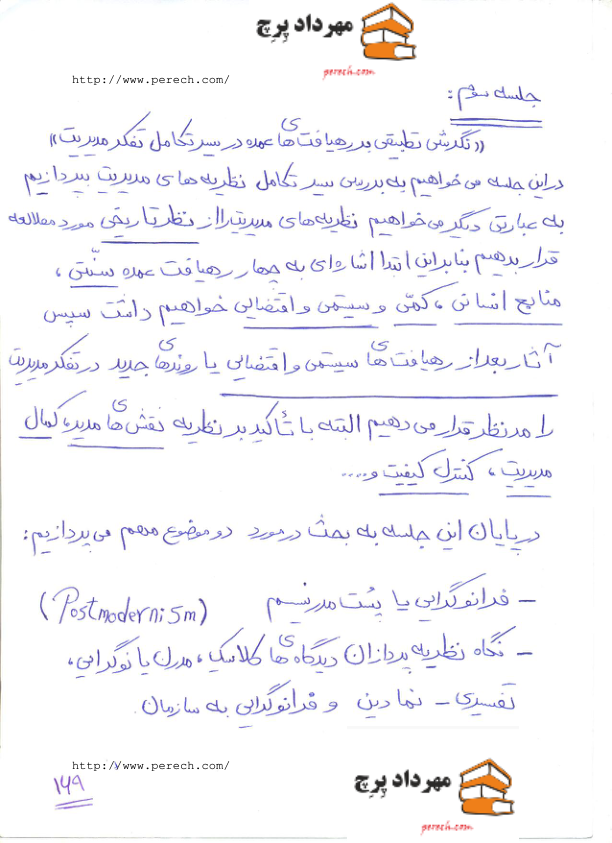 مهرداد پرچ
perech.com
http://www.perech.com/
جلسه سوم:
«نگرشی تطبیقی بر رهیافت های عمده در سیر تکامل تفکر مدیریت»
در این جلسه می خواهیم به بررسی سیر تکامل نظریه های مدیریت بپردازیم
به عبارتی دیگر می خواهیم نظریه های مدیریت را از نظر تاریخی مورد مطالعه
قرار بدهیم بنابراین ابتدا اشاره ای به چهار رهیافت عمده سنّتی ،
منابع انسانی ، کمّی و سیستمی و اقتضایی خواهیم داشت سپس
آثار بعد از رهیافت های سیستمی و اقتضایی یا روندهای جدید در تفکر مدیریت
را مدنظر قرار می دهیم البته با تأکید بر نظریه نقش های مدیر، کمال
مدیریت ، کنترل کیفیت و....
در پایان این جلسه به بحث در مورد دو موضوع مهم می پردازیم:
– فرانوگرایی یا پُست مدرنیسم (Postmodernism)
– نگاه نظریه پردازان دیدگاه های کلاسیک ، مدرن یا نوگرایی ،
تفسیری – نمادین و فرانوگرایی به سازمان.
http://www.perech.com/
۱۴۹
مهرداد پرچ
perech.com